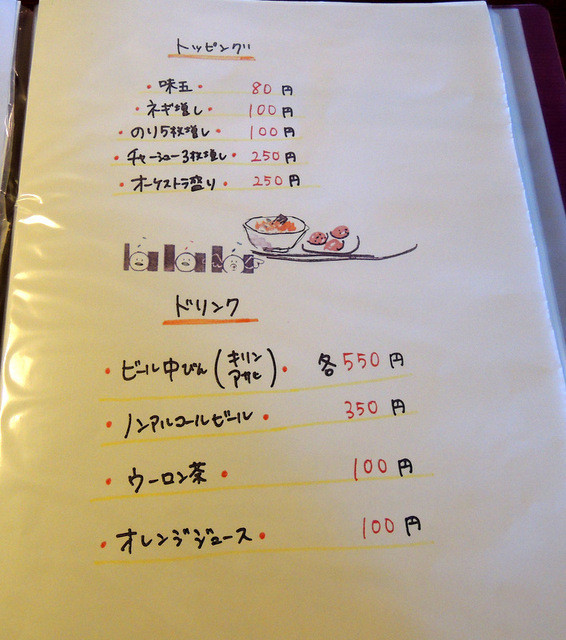 トッピング
・味玉・ 80円
・ネギ増し・ 100円
・のり5枚増し・ 100円
・チャーシュー3枚増し・ 250円
・オーケストラ盛り・ 250円
ドリンク
・ビール中びん(キリン アサヒ)・ 各550円
・ノンアルコールビール・ 350円
・ウーロン茶・ 100円
・オレンジジュース・ 100円